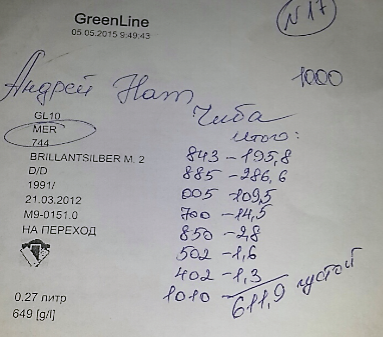 GreenLine
05.05.2015 9:49:43
N 17
Андрей Нат 1000
GL10
MER
744
BRILLANTSILBER M. 2
D/D
1991/
21.03.2012
M9-0151.0
НА ПЕРЕХОД
0.27 литр
649 [g/l]
Чиба
итого:
843 - 195,8
885 - 286,6
005 - 109,5
700 - 14,5
850 - 2,8
502 - 1,6
402 - 1,3
1010 - 611,9 густой